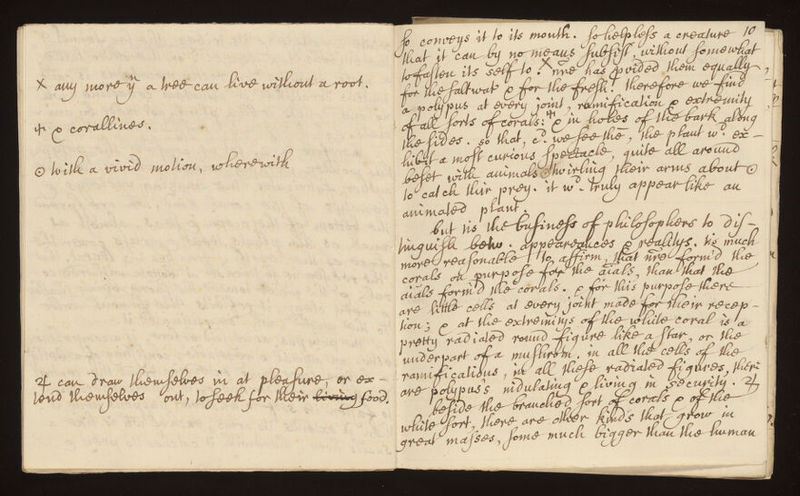 x any more yn a tree can live without a root.
♃ & corallines.
⊙ with a vivid motion, wherewith
♃ can draw themselves in at pleasure, or ex-
tend themselves out, to seek for their living food.
10
so conveys it to its mouth. so helpless a creature
that it can by no means subsist, without somewhat
to fasten its self to. x nre has pvided them equally
for the saltwatr & for the fresh. therefore we find
a polypus at every joint, ramification & extremity
of all sorts of corals: ♃ & in holes of the bark along
the sides. so that, cd. we see thē, the plant wd. ex-
hibit a most curious spectacle, quite all around
beset with animals ⊙ twirling their arms about ⊙
to catch their prey. it wd. truly appear like an
animated plant.
but tis the business of philosophers to dis-
tinguish betw. appearances & realitys. tis much
more reasonable to affirm, that nre form'd the
corals on purpose for the aials, than that the
aials form'd the corals. & for this purpose there
are little cells at every joint made for their recep-
tion; & at the extremitys of the white coral is a
pretty radiated round figure like a star, or the
underpart of a mushrom. in all the cells of the
ramifications, in all these radiated figures, their
are polypus's nidulating & living in security. ♃
beside the branched sort of corals & of the
white sort, there are other kinds that grow in
great masses, some much bigger than the human